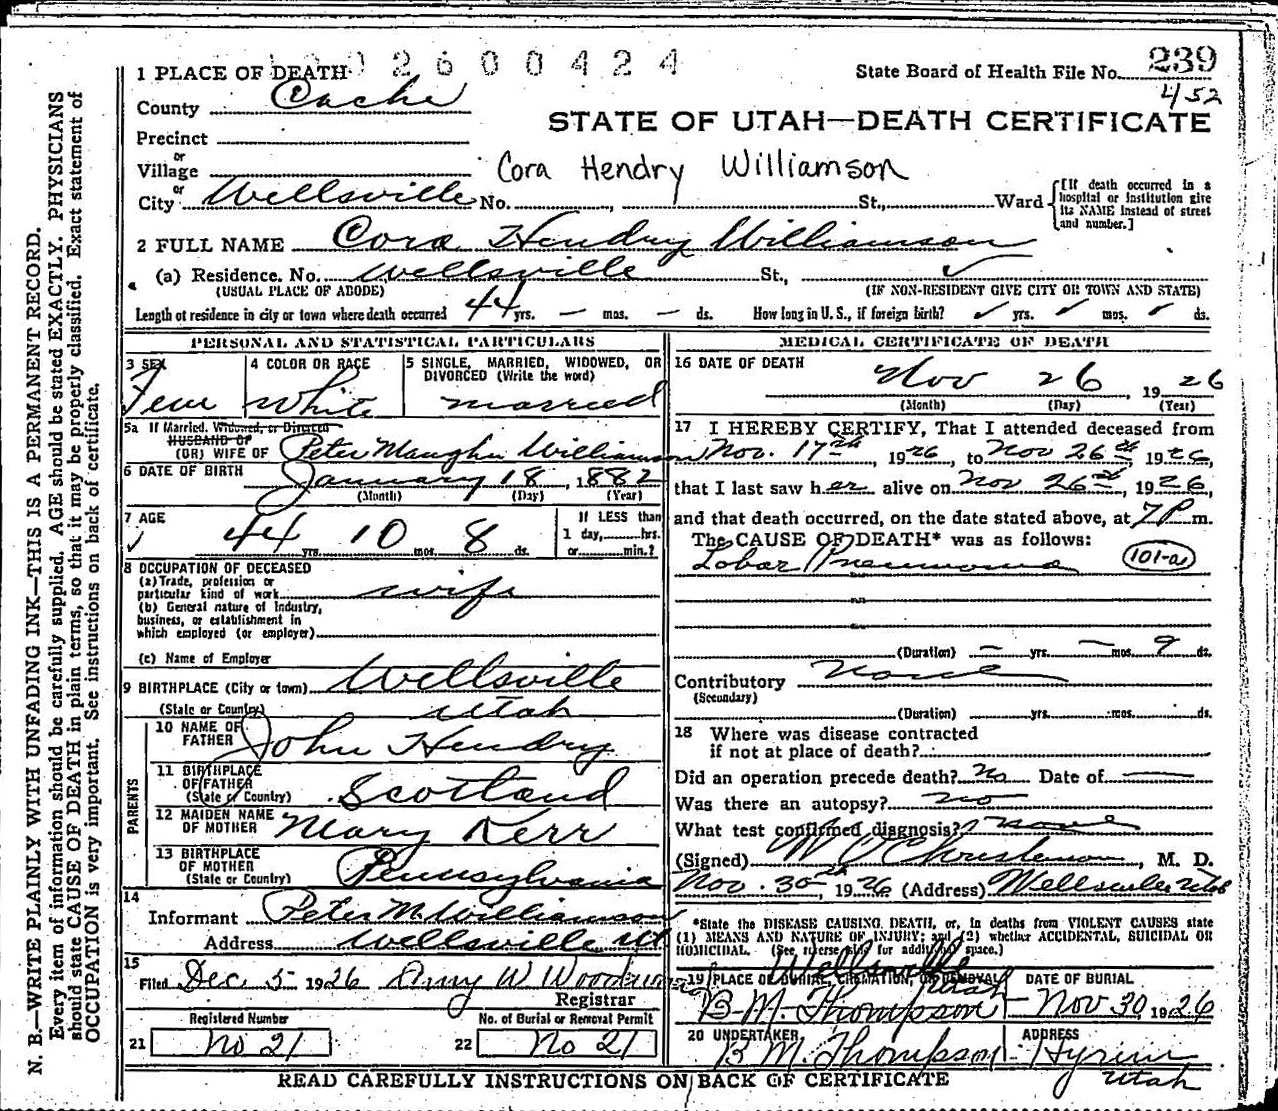 2600424
239
State Board of Health File No.
452
1 PLACE OF DEATH
County Cache
STATE OF UTAH—DEATH CERTIFICATE
Precinct
or
Village
Cora Hendry Williamson
or
City Wellsville No. , St., Ward
[If death occurred in a hospital or institution give its NAME instead of street and number.]
2 FULL NAME Cora Hendry Williamson
(a) Residence. No. Wellsville St., ✓
(USUAL PLACE OF ABODE) (IF NON-RESIDENT GIVE CITY OR TOWN AND STATE)
Length of residence in city or town where death occurred 44 yrs. — mos. — ds. How long in U. S., if foreign birth? ✓ yrs. ✓ mos. ✓ ds.
PERSONAL AND STATISTICAL PARTICULARS
3 SEX
Fem
4 COLOR OR RACE
White
5 SINGLE, MARRIED, WIDOWED, OR DIVORCED (Write the word)
married
5a If Married, Widowed, or Divorced
HUSBAND OF
(OR) WIFE OF Peter Maughn Williamson
6 DATE OF BIRTH January 18, 1882
(Month) (Day) (Year)
7 AGE
✓ 44 yrs. 10 mos. 8 ds.
If LESS than
1 day, hrs.
or min.?
8 OCCUPATION OF DECEASED
(a) Trade, profession or
particular kind of work wife
(b) General nature of Industry,
business, or establishment in
which employed (or employer)
(c) Name of Employer
9 BIRTHPLACE (City or town) Wellsville
(State or Country) Utah
PARENTS
10 NAME OF FATHER John Hendry
11 BIRTHPLACE OF FATHER (State or Country) Scotland
12 MAIDEN NAME OF MOTHER Mary Kerr
13 BIRTHPLACE OF MOTHER (State or Country) Pennsylvania
14
Informant Peter M. Williamson
Address Wellsville Ut
15
Filed Dec 5 1926
Registrar
Registered Number
21 No 21
No. of Burial or Removal Permit
22 No 21
MEDICAL CERTIFICATE OF DEATH
16 DATE OF DEATH
Nov 26, 1926
(Month) (Day) (Year)
17 I HEREBY CERTIFY, That I attended deceased from
Nov. 17th, 1926, to Nov 26th, 1926,
that I last saw her alive on Nov 26th, 1926,
and that death occurred, on the date stated above, at 7 P m.
The CAUSE OF DEATH* was as follows:
Lobar Pneumonia 101-a
(Duration) — yrs. — mos. 9 ds.
Contributory None
(Secondary)
(Duration) yrs. mos. ds.
18 Where was disease contracted
if not at place of death?
Did an operation precede death? no Date of —
Was there an autopsy? no
What test confirmed diagnosis? none
(Signed) Christensen, M. D.
Nov. 30th, 1926 (Address) Wellsville Utah
*State the DISEASE CAUSING DEATH, or, in deaths from VIOLENT CAUSES state
(1) MEANS AND NATURE OF INJURY; and (2) whether ACCIDENTAL, SUICIDAL OR
HOMICIDAL. (See reverse side for additional space.)
19 PLACE OF BURIAL, CREMATION, OR REMOVAL
Wellsville Utah
B M. Thompson
DATE OF BURIAL
Nov 30, 1926
20 UNDERTAKER
B M. Thompson
ADDRESS
Hyrum Utah
READ CAREFULLY INSTRUCTIONS ON BACK OF CERTIFICATE
N. B.—WRITE PLAINLY WITH UNFADING INK—THIS IS A PERMANENT RECORD.
Every item of information should be carefully supplied. AGE should be stated EXACTLY. PHYSICIANS
should state CAUSE OF DEATH in plain terms, so that it may be properly classified. Exact statement of
OCCUPATION is very important. See instructions on back of certificate.